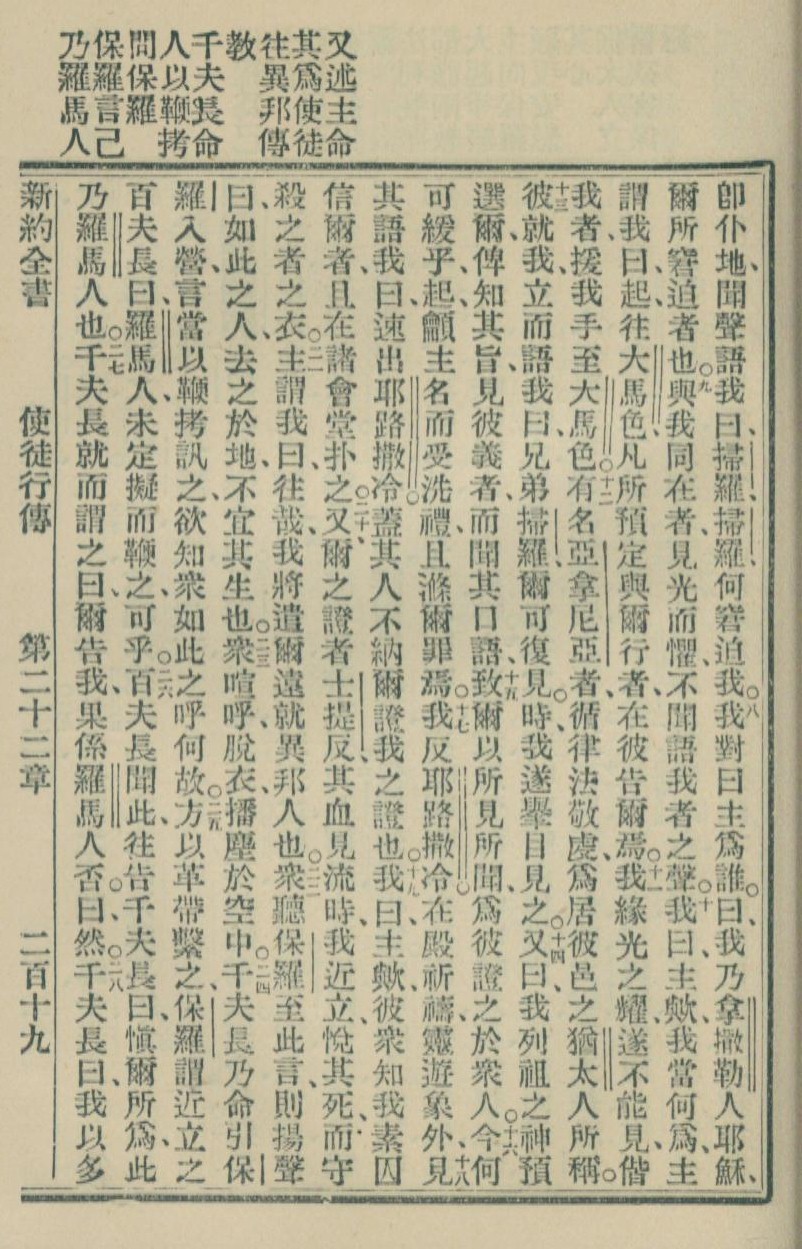 又述主命
其爲使徒
往異邦傳
敎
千夫長命
人以鞭拷
問保羅
保羅言己
乃羅馬人
卽仆地、聞聲語我曰、掃羅、掃羅、何窘迫我、○八我對曰、主爲誰、○曰、我乃拿撒勒人耶穌、
爾所窘迫者也、○九與我同在者、見光而懼、不聞語我者之聲、○十我曰、主歟、我當何爲、主
謂我曰、起、往大馬色、凡所預定與爾行者、在彼告爾焉、○十一我緣光之耀、遂不能見、偕
我者、援我手至大馬色、○十二有名亞拿尼亞者、循律法敬虔、爲居彼邑之猶太人所稱、○
十三彼就我、立而語我曰、兄弟掃羅、爾可復見、○時、我遂舉目見之、○十四又曰、我列祖之神預
選爾、俾知其旨、見彼義者、而聞其口語、十五致爾以所見所聞、爲彼證之於衆人、○十六今何
可緩乎、起、龥主名而受洗禮、且滌爾罪焉、○十七我反耶路撒冷、在殿祈禱、靈遊象外、十八見
其語我曰、速出耶路撒冷、○蓋其人不納爾證我之證也、○十九我曰、主歟、彼衆知我素囚
信爾者、且在諸會堂扑之、○二十又爾之證者士提反、其血見流時、我近立、悅其死、而守
殺之者之衣、○二一主謂我曰、往哉、我將遣爾遠就異邦人也、○二二衆聽保羅至此言、則揚聲
曰、如此之人、去之於地、不宜其生也、○二三衆喧呼、脫衣、播塵於空中、○二四千夫長乃命引保
羅入營、言當以鞭拷訊之、欲知衆如此之呼何故、○二五方以革帶繫之、保羅謂近立之
百夫長曰、羅馬人、未定擬而鞭之、可乎、○二六百夫長聞此、往告千夫長曰、愼爾所爲、此
乃羅馬人也、○二七千夫長就而謂之曰、爾告我、果係羅馬人否、○曰、然、○二八千夫長曰、我以多
新約全書 使徒行傳 第二十二章 二百十九